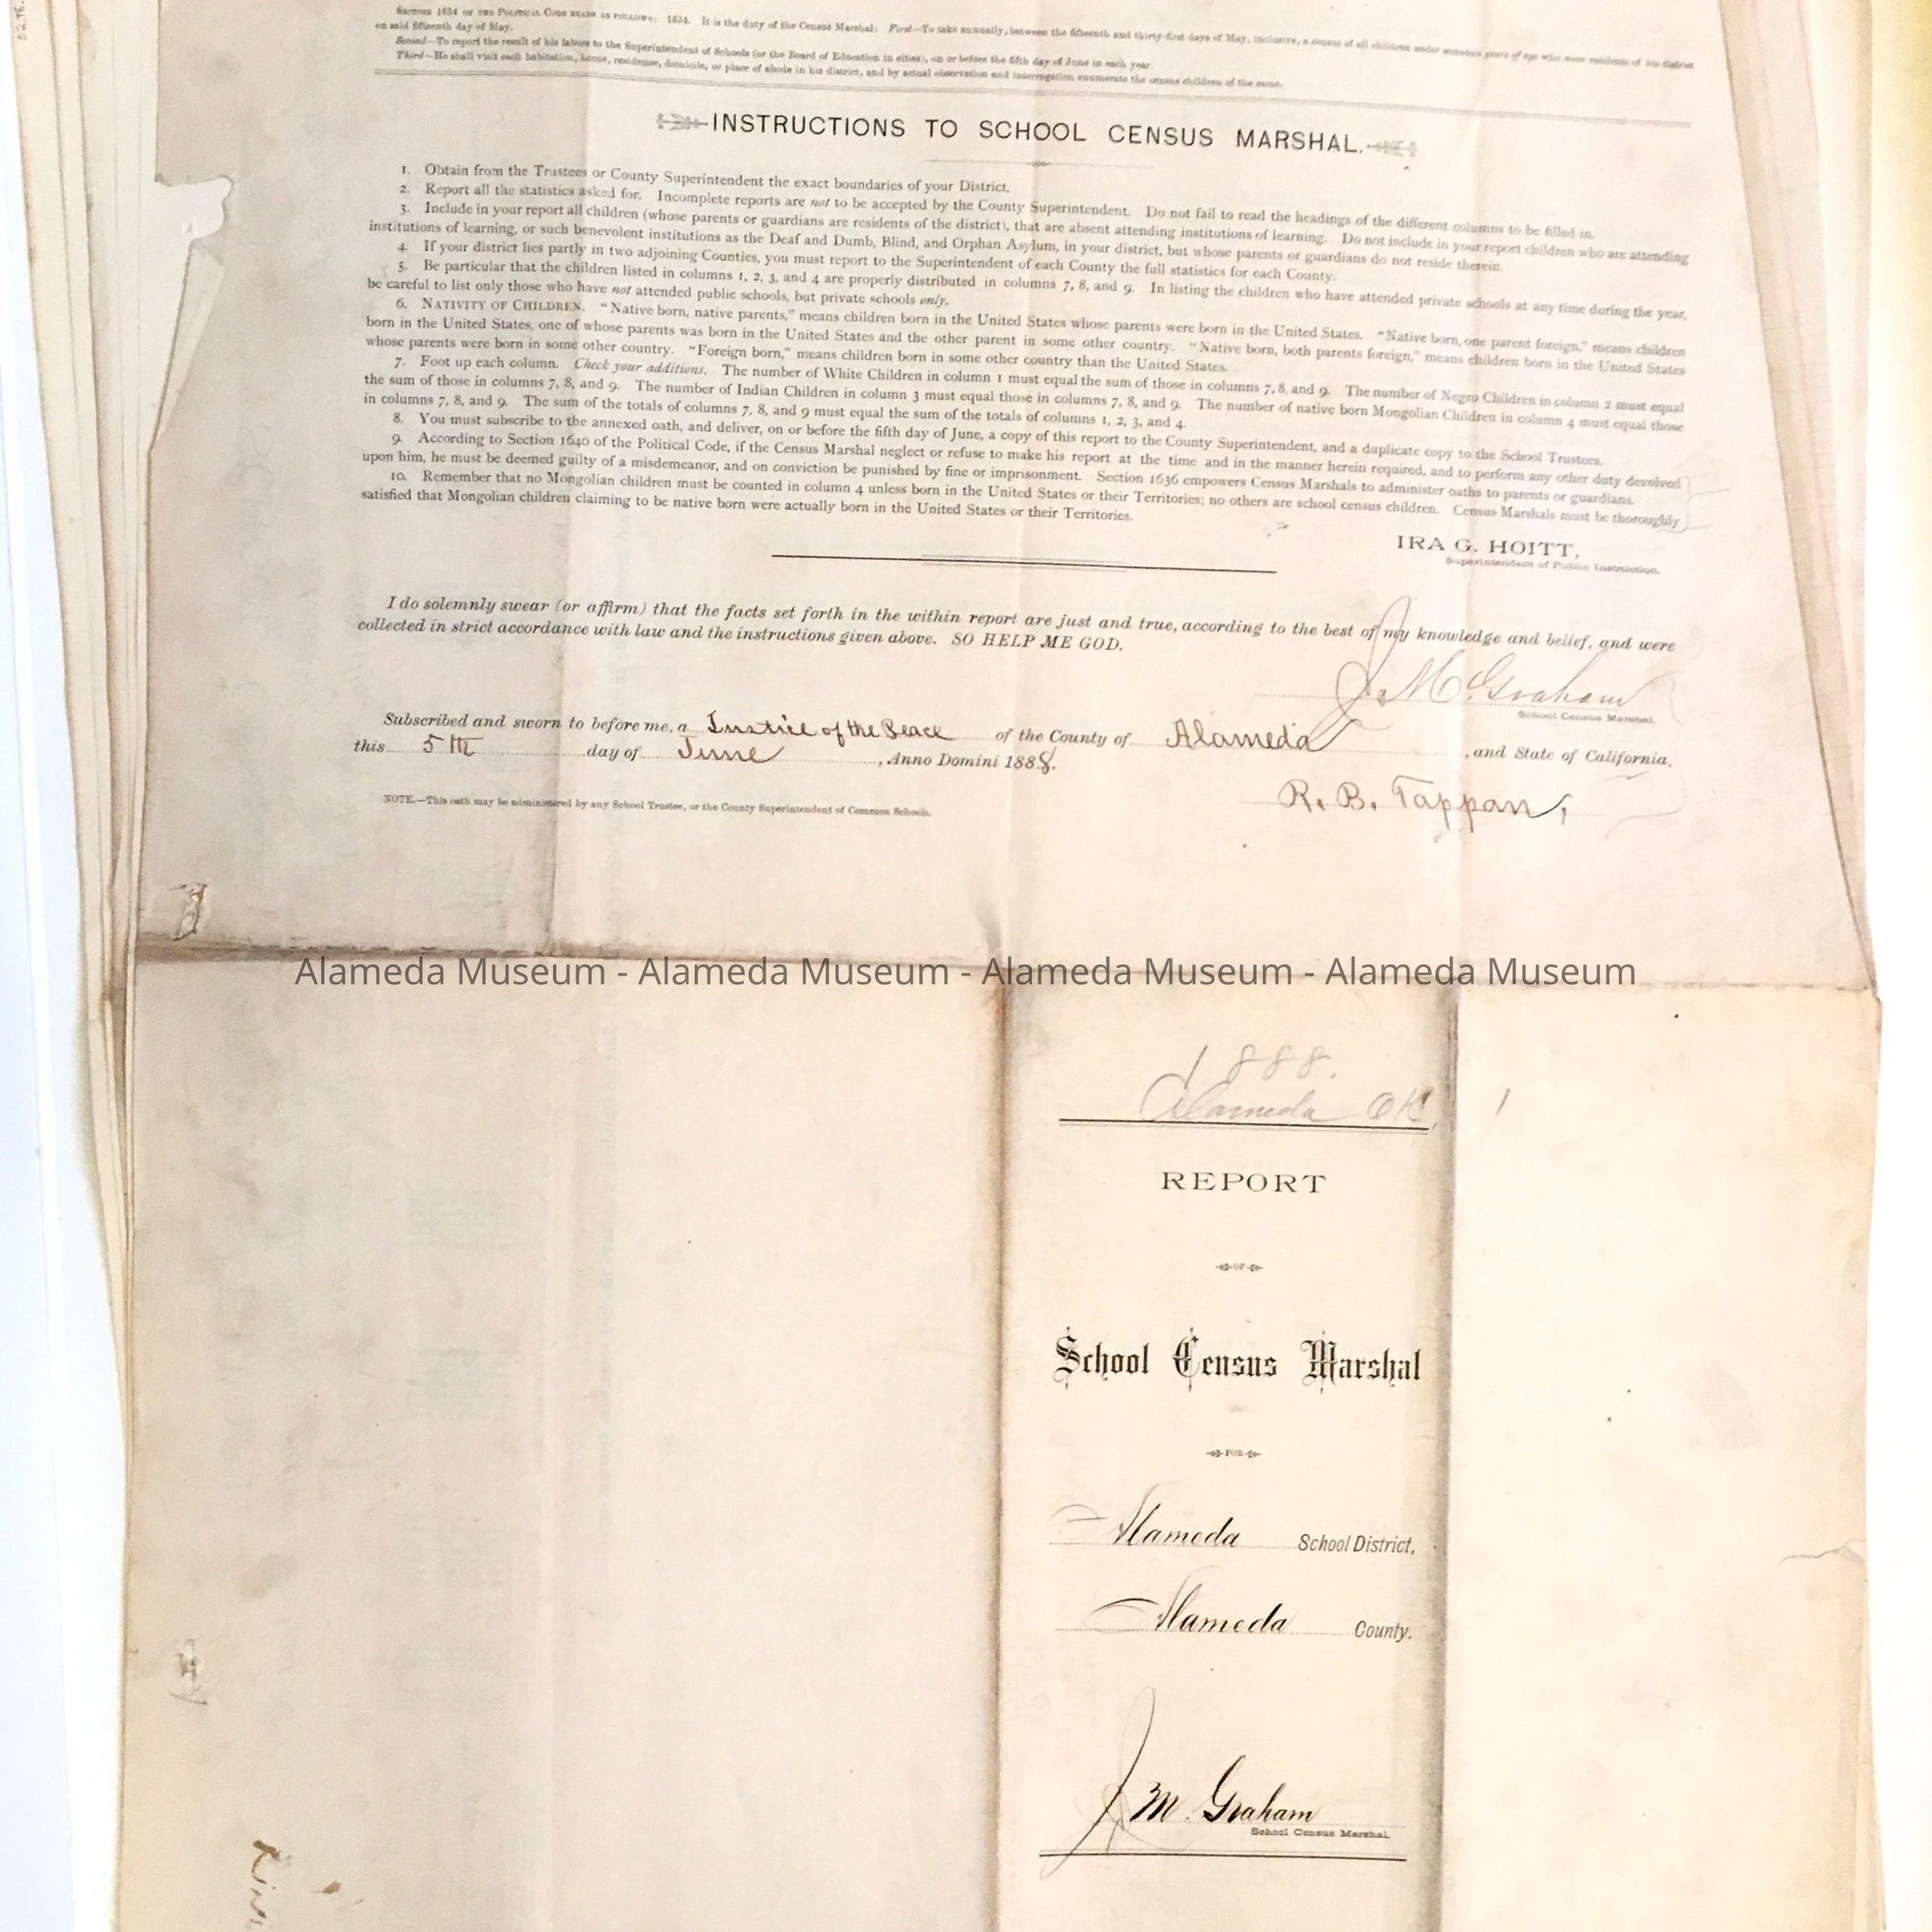 SECTION 1634 OF THE POLITICAL CODE READS AS FOLLOWS: 1634. It is the duty of the Census Marshal: First—To take annually, between the fifteenth and thirty-first days of May, inclusive, a census of all children under seventeen years of age who were residents of his district
on said fifteenth day of May.
Second—To report the result of his labors to the Superintendent of Schools (or the Board of Education in cities), on or before the fifth day of June in each year.
Third—He shall visit each habitation, home, residence, domicile, or place of abode in his district, and by actual observation and interrogation enumerate the census children of the same.
INSTRUCTIONS TO SCHOOL CENSUS MARSHAL.
1. Obtain from the Trustees or County Superintendent the exact boundaries of your District.
2. Report all the statistics asked for. Incomplete reports are not to be accepted by the County Superintendent. Do not fail to read the headings of the different columns to be filled in.
3. Include in your report all children (whose parents or guardians are residents of the district), that are absent attending institutions of learning. Do not include in your report children who are attending
institutions of learning, or such benevolent institutions as the Deaf and Dumb, Blind, and Orphan Asylum, in your district, but whose parents or guardians do not reside therein.
4. If your district lies partly in two adjoining Counties, you must report to the Superintendent of each County the full statistics for each County.
5. Be particular that the children listed in columns 1, 2, 3, and 4 are properly distributed in columns 7, 8, and 9. In listing the children who have attended private schools at any time during the year,
be careful to list only those who have not attended public schools, but private schools only.
6. NATIVITY OF CHILDREN. "Native born, native parents," means children born in the United States whose parents were born in the United States. "Native born, one parent foreign," means children
born in the United States, one of whose parents was born in the United States and the other parent in some other country. "Native born, both parents foreign," means children born in the United States
whose parents were born in some other country. "Foreign born," means children born in some other country than the United States.
7. Foot up each column. Check your additions. The number of White Children in column 1 must equal the sum of those in columns 7, 8, and 9. The number of Negro Children in column 2 must equal
the sum of those in columns 7, 8, and 9. The number of Indian Children in column 3 must equal those in columns 7, 8, and 9. The number of native born Mongolian Children in column 4 must equal those
in columns 7, 8, and 9. The sum of the totals of columns 7, 8, and 9 must equal the sum of the totals of columns 1, 2, 3, and 4.
8. You must subscribe to the annexed oath, and deliver, on or before the fifth day of June, a copy of this report to the County Superintendent, and a duplicate copy to the School Trustees.
9. According to Section 1640 of the Political Code, if the Census Marshal neglect or refuse to make his report at the time and in the manner herein required, and to perform any other duty devolved
upon him, he must be deemed guilty of a misdemeanor, and on conviction be punished by fine or imprisonment. Section 1636 empowers Census Marshals to administer oaths to parents or guardians.
10. Remember that no Mongolian children must be counted in column 4 unless born in the United States or their Territories; no others are school census children. Census Marshals must be thoroughly
satisfied that Mongolian children claiming to be native born were actually born in the United States or their Territories.
IRA G. HOITT,
Superintendent of Public Instruction.
I do solemnly swear (or affirm) that the facts set forth in the within report are just and true, according to the best of my knowledge and belief, and were
collected in strict accordance with law and the instructions given above. SO HELP ME GOD.
J. M. Graham
School Census Marshal.
Subscribed and sworn to before me, a Justice of the Peace of the County of Alameda, and State of California,
this 5th day of June, Anno Domini 1888.
R. B. Tappan,
NOTE.—This oath may be administered by any School Trustee, or the County Superintendent of Common Schools.
Alameda Museum - Alameda Museum - Alameda Museum - Alameda Museum
1888.
Alameda OK
REPORT
OF
School Census Marshal
FOR
Alameda School District,
Alameda County.
J M. Graham
School Census Marshal.